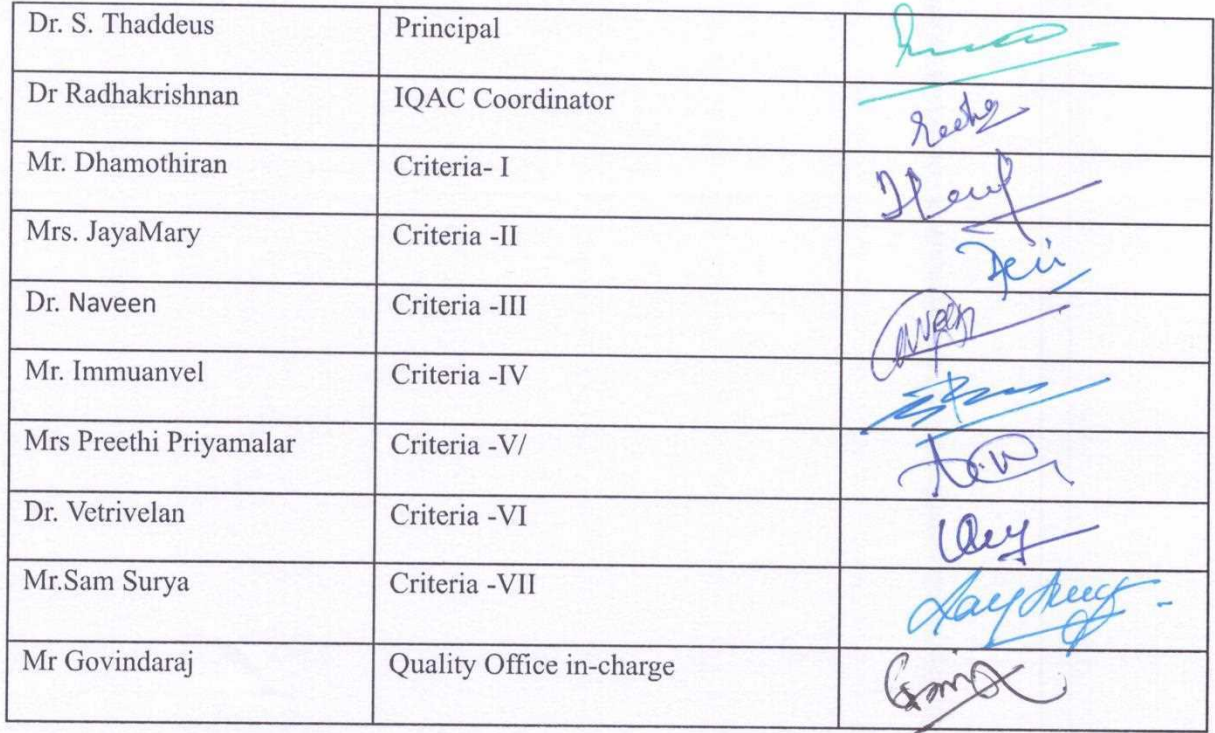 Dr. S. Thaddeus Principal
Dr Radhakrishnan IQAC Coordinator
Mr. Dhamothiran Criteria- I
Mrs. JayaMary Criteria -II
Dr. Naveen Criteria -III
Mr. Immuanvel Criteria -IV
Mrs Preethi Priyamalar Criteria -V/
Dr. Vetrivelan Criteria -VI
Mr.Sam Surya Criteria -VII
Mr Govindaraj Quality Office in-charge